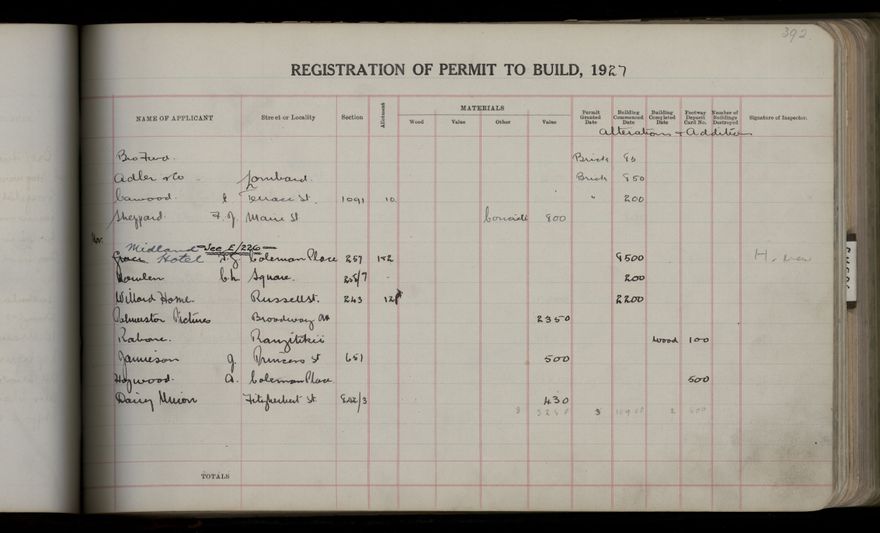 392
REGISTRATION OF PERMIT TO BUILD, 1927
NAME OF APPLICANT Street or Locality Section Allotment MATERIALS Wood Value Other Value Permit Granted Date Building Commenced Date Building Completed Date Footway Deposit Card No. Number of Buildings Destroyed Signature of Inspector.
Alterations & Additions
Brick
Adler & Co Lombard. Brick 850
Cawood. Terrace St. 1091 10 " 200
Sheppard F J Main St Concrete 800
Nov.
Midland See E/226
Hotel A.J. Coleman Place 257 8500
Ch Square. 200
Willard Home Russell St. 243 2200
Palmerston Pictures Broadway Av 2350
Rangitikei Wood 100
Jamieson J. Princess St 651 500
A. Coleman Place 500
Dairy Union Fitzherbert St 430
TOTALS